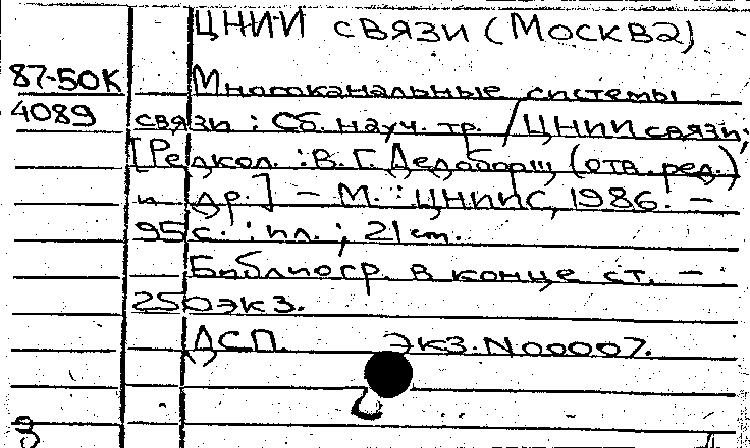 ЦНИИ связи (Москва)
87-50К Многоканальные системы
4089 связи : Сб. науч. тр. / ЦНИИ связи;
[Редкол. : В. Г. Дедоборщ (отв. ред.)
и др.] – М. : ЦНИИС, 1986. –
95 с. : ил. ; 21 см.
Библиогр. в конце ст. –
250 экз.
ДСП. Экз. N00007.